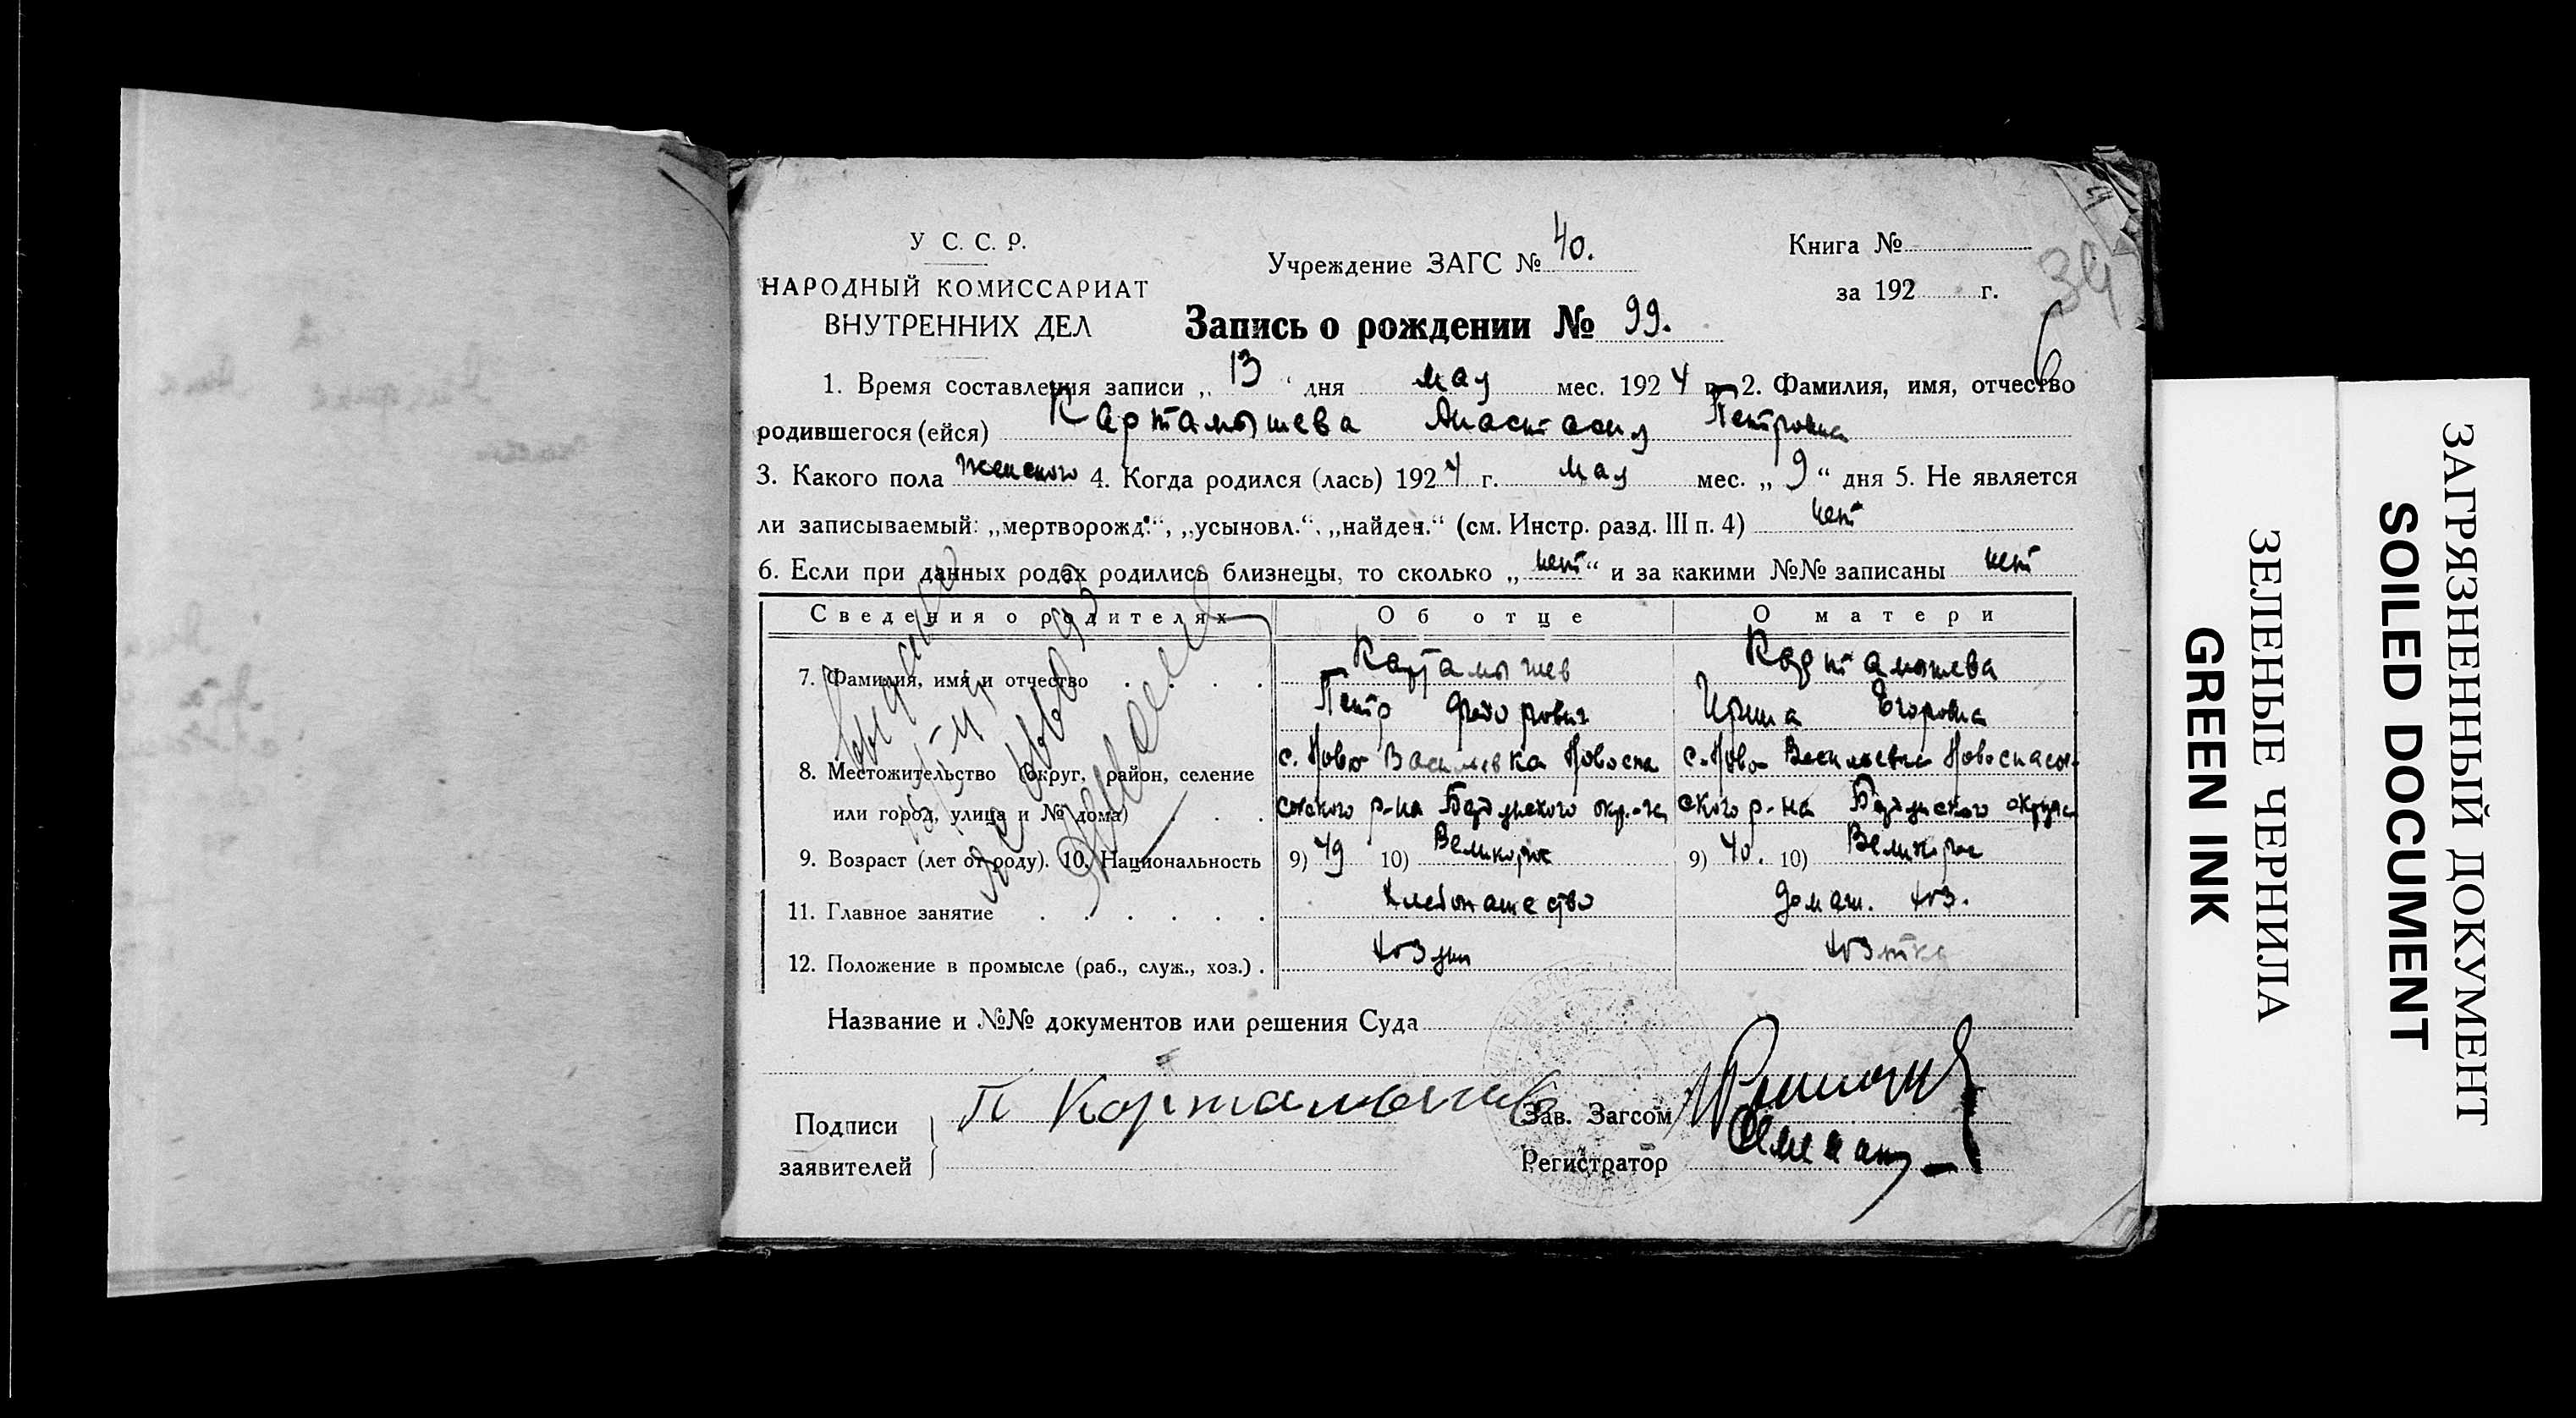 У С. С. Р.
НАРОДНЫЙ КОМИССАРИАТ
ВНУТРЕННИХ ДЕЛ
Учреждение ЗАГС № 40.
Книга №
за 192 г.
34
6
Запись о рождении № 99.
1. Время составления записи „ 13 “ дня мая мес. 1924 г. 2. Фамилия, имя, отчество
родившегося (ейся) Картамышева Анастасия Петровна
3. Какого пола женского 4. Когда родился (лась) 1924 г. мая мес. „ 9 “ дня 5. Не является
ли записываемый: „мертворожд.“, „усыновл.“, „найден.“ (см. Инстр. разд. III п. 4) нет
6. Если при данных родах родились близнецы, то сколько „ нет “ и за какими №№ записаны нет
Сведения о родителях Об отце О матери
7. Фамилия, имя и отчество Картамышев Картамышева
Петр Федорович Ирина Егоровна
8. Местожительство (округ, район, селение с. Ново Васильевка Новоспа с. Ново Васильевка Новоспасов-
или город, улица и № дома) совского р-на Бердянского окр-га ского р-на Бердянского округа
9. Возраст (лет от роду). 10. Национальность 9) 49 10) Великорос 9) 40. 10) Великорос
11. Главное занятие Хлебопашество Домаш. хоз.
12. Положение в промысле (раб., служ., хоз.) Хозяин Хозяйка
Название и №№ документов или решения Суда
Подписи
заявителей
П Картамышев
Зав. Загсом
Регистратор
ЗЕЛЕНЫЕ ЧЕРНИЛА
GREEN INK
ЗАГРЯЗНЕННЫЙ ДОКУМЕНТ
SOILED DOCUMENT